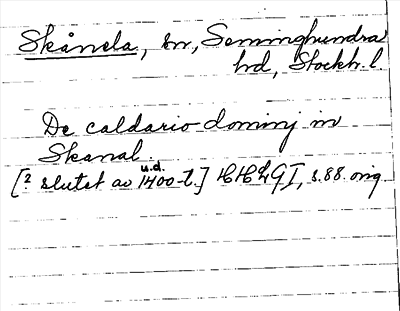 Skånela, sn, Seminghundra
hd, Stockh. l.
De caldario dominj in
Skanal.
u.d.
[? slutet av 1400-t.] HHLGI, s. 88. orig.